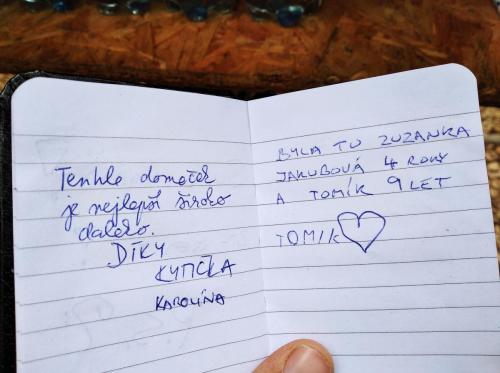 Tenhle domeček
je nejlepší široko
daleko.
DÍKY
KYTIČKA
KAROLÍNA
BYLA TU ZUZANKA
JAKUBOVÁ 4 ROKY
A TOMÍK 9 LET
TOMÍK